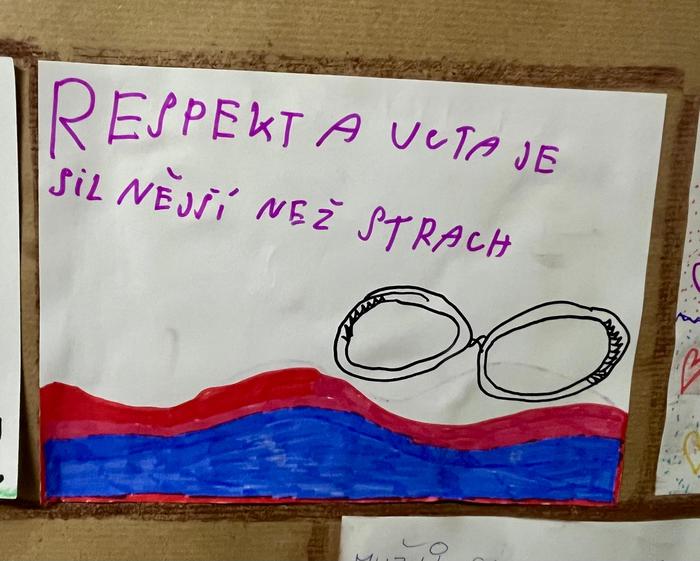 RESPEKT A UCTA JE
SiLNĚJŠÍ NEŽ STRACH